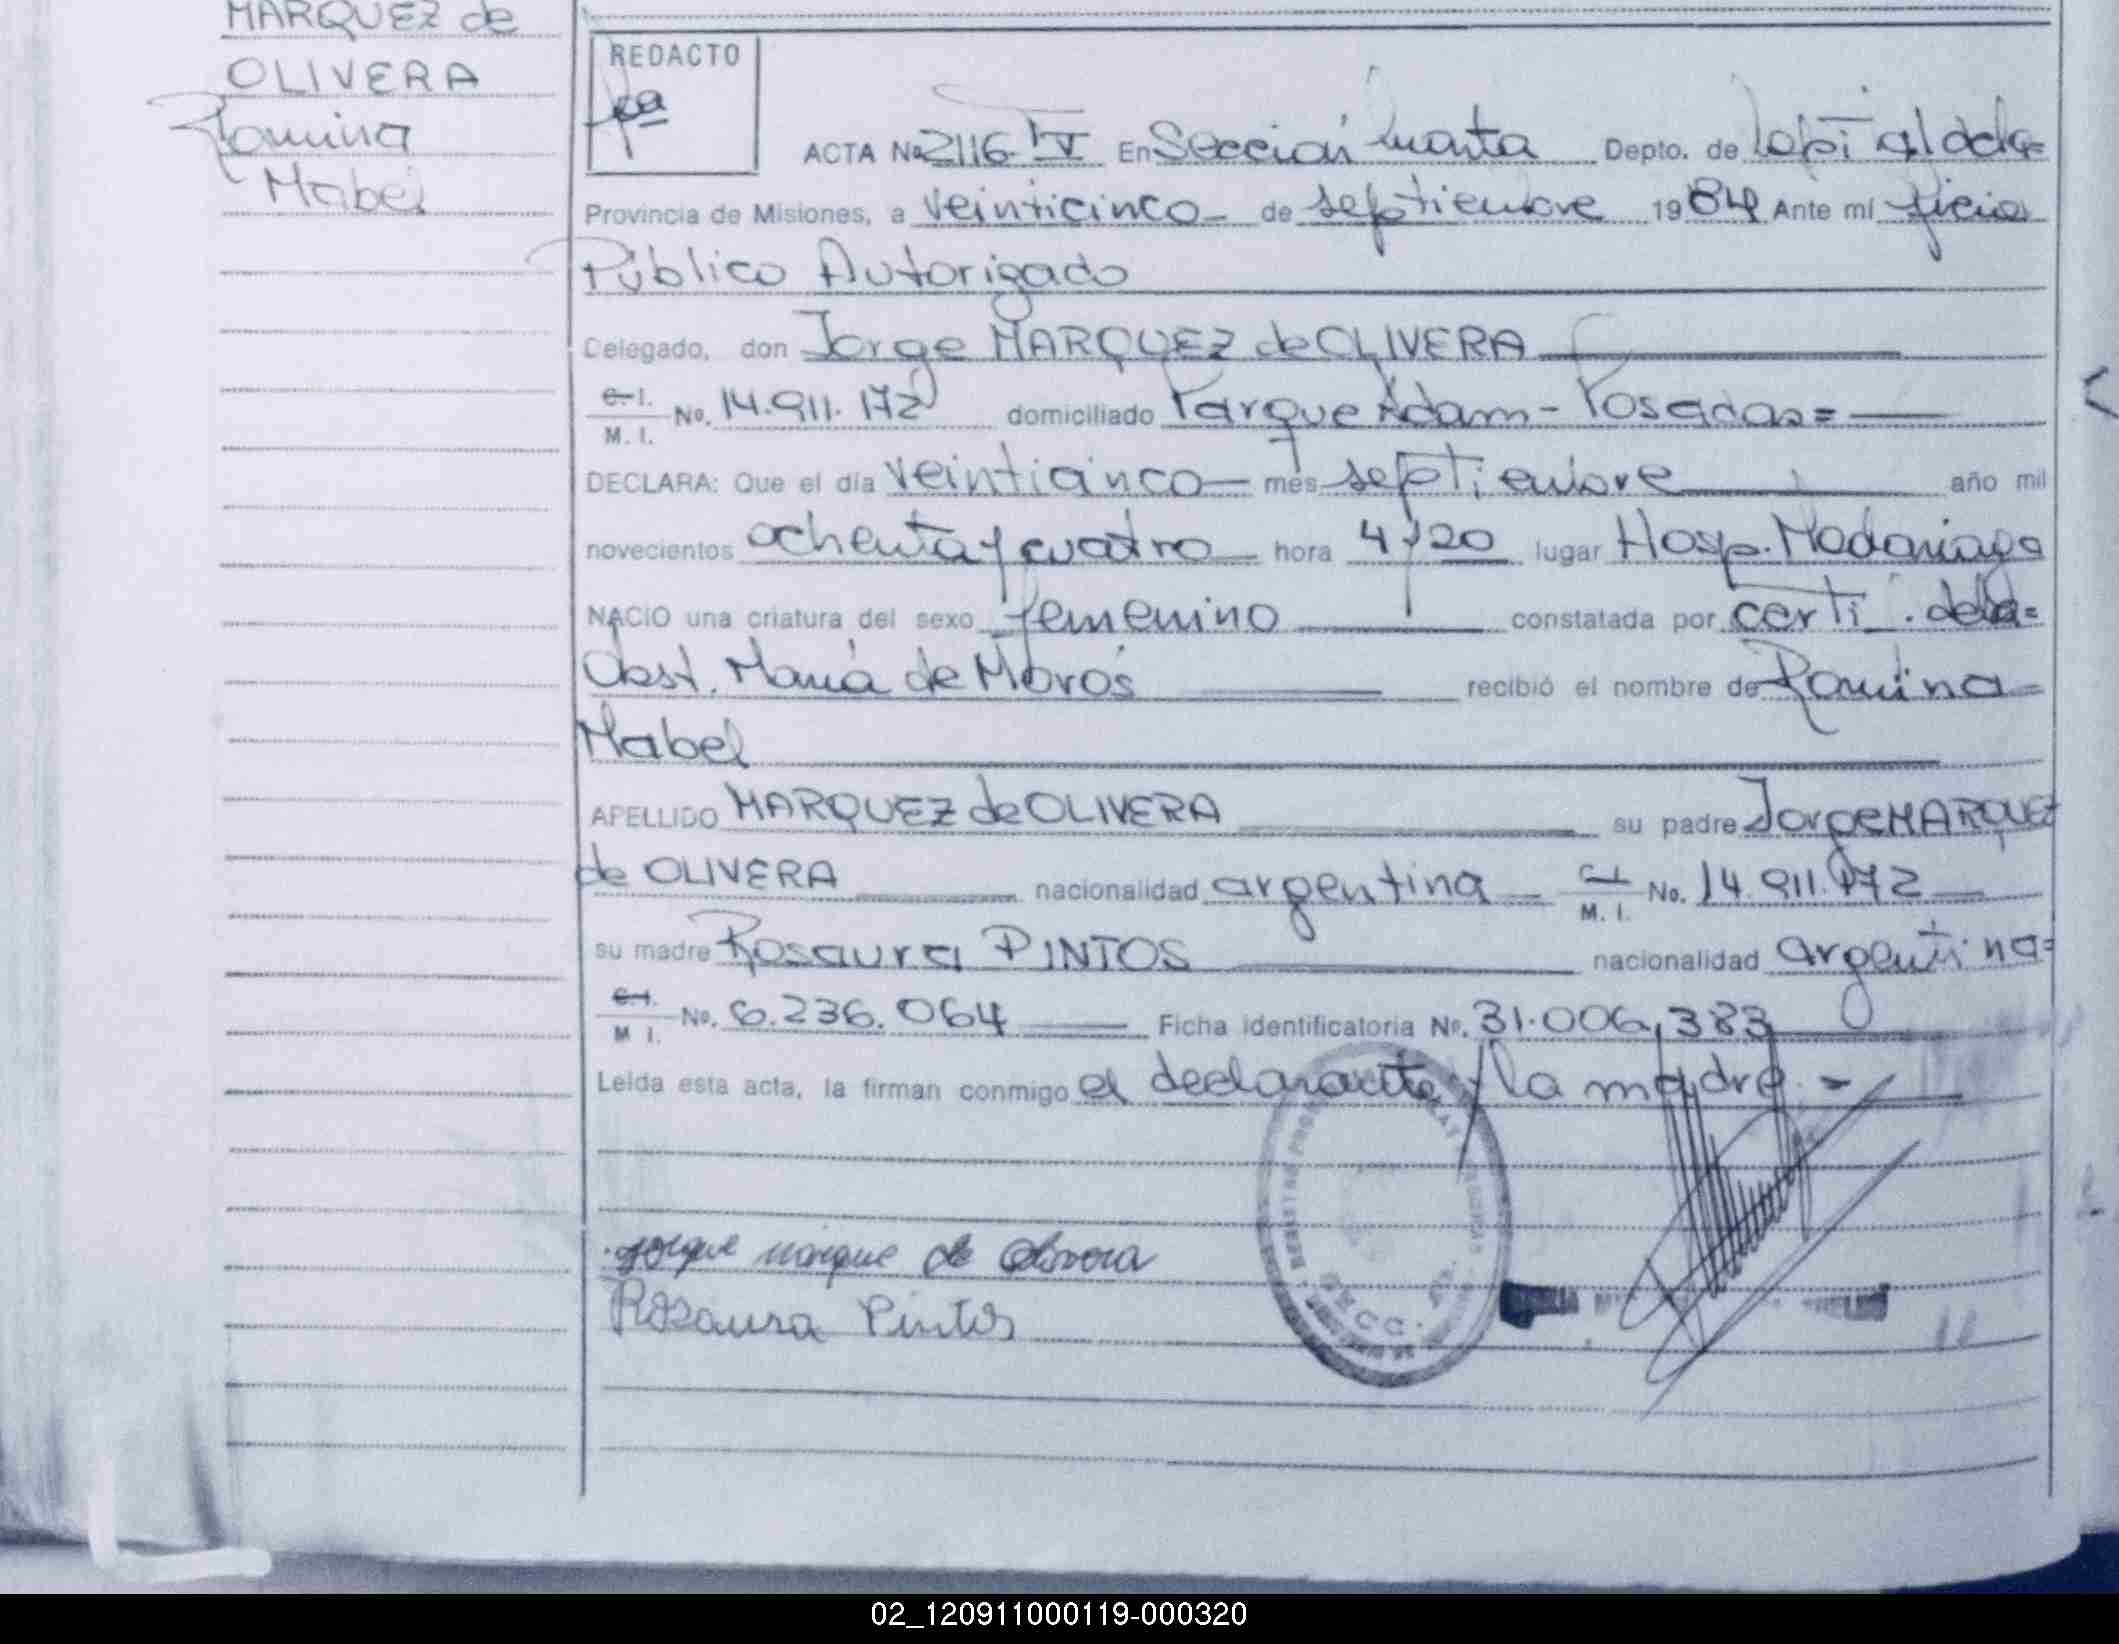 MARQUEZ de
OLIVERA
Romina
Mabel
REDACTO
ACTA No 2116-IV En Sección Cuarta Depto. de Capital de la=
Provincia de Misiones, a veinticinco de septiembre 1984 Ante mí ficial
Público Autorizado
Delegado, don Jorge MARQUEZ de OLIVERA
C.I.
M. I. No. 14.911.172 domiciliado Parque Adam - Posadas=
DECLARA: Que el día veinticinco mes septiembre año mil
novecientos ochenta y cuatro hora 4 y 20 lugar Hosp. Madariaga
NACIO una criatura del sexo femenino constatada por certi. de la=
Obst. María de Moros recibió el nombre de Romina
Mabel
APELLIDO MARQUEZ de OLIVERA su padre Jorge MARQUEZ
de OLIVERA nacionalidad argentina C.I. M. I. No. 14.911.172
su madre Rosaura PINTOS nacionalidad argentina=
C.I.
M I. No. 6.236.064 Ficha identificatoria No. 31.006,383
Leída esta acta, la firman conmigo el declarante y la madre.-
Jorge marque de Olivera
Rosaura Pintos
02_120911000119-000320